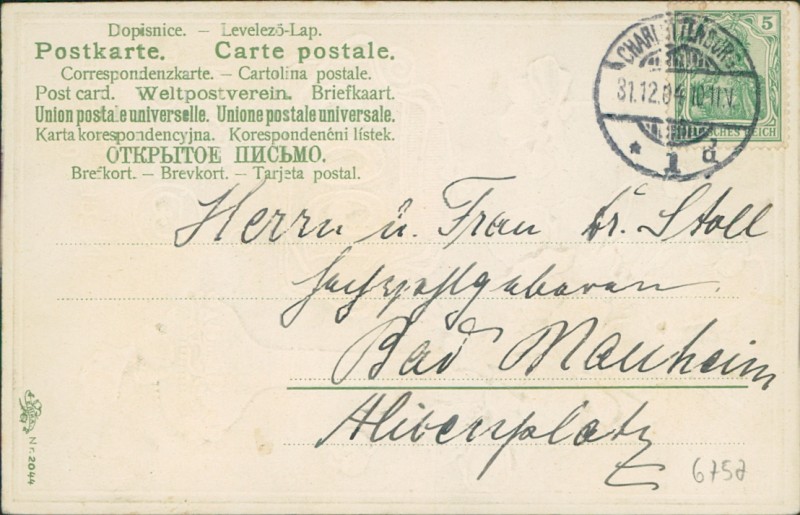 Dopisnice. – Levelező-Lap.
Postkarte. Carte postale.
Correspondenzkarte. – Cartolina postale.
Post card. Weltpostverein. Briefkaart.
Union postale universelle. Unione postale universale.
Karta korespondencyjna. Korespondenéni lístek.
ОТКРЫТОЕ ПИСЬМО.
Brefkort. – Brevkort. – Tarjeta postal.
CHARLOTTENBURG
31.12.04 10-11V.
* 1 d
5
DEUTSCHES REICH
Herrn u. Frau Dr. Stoll
Hochwohlgeboren
Bad Nauheim
Alicenplatz
6752
Nr. 2044